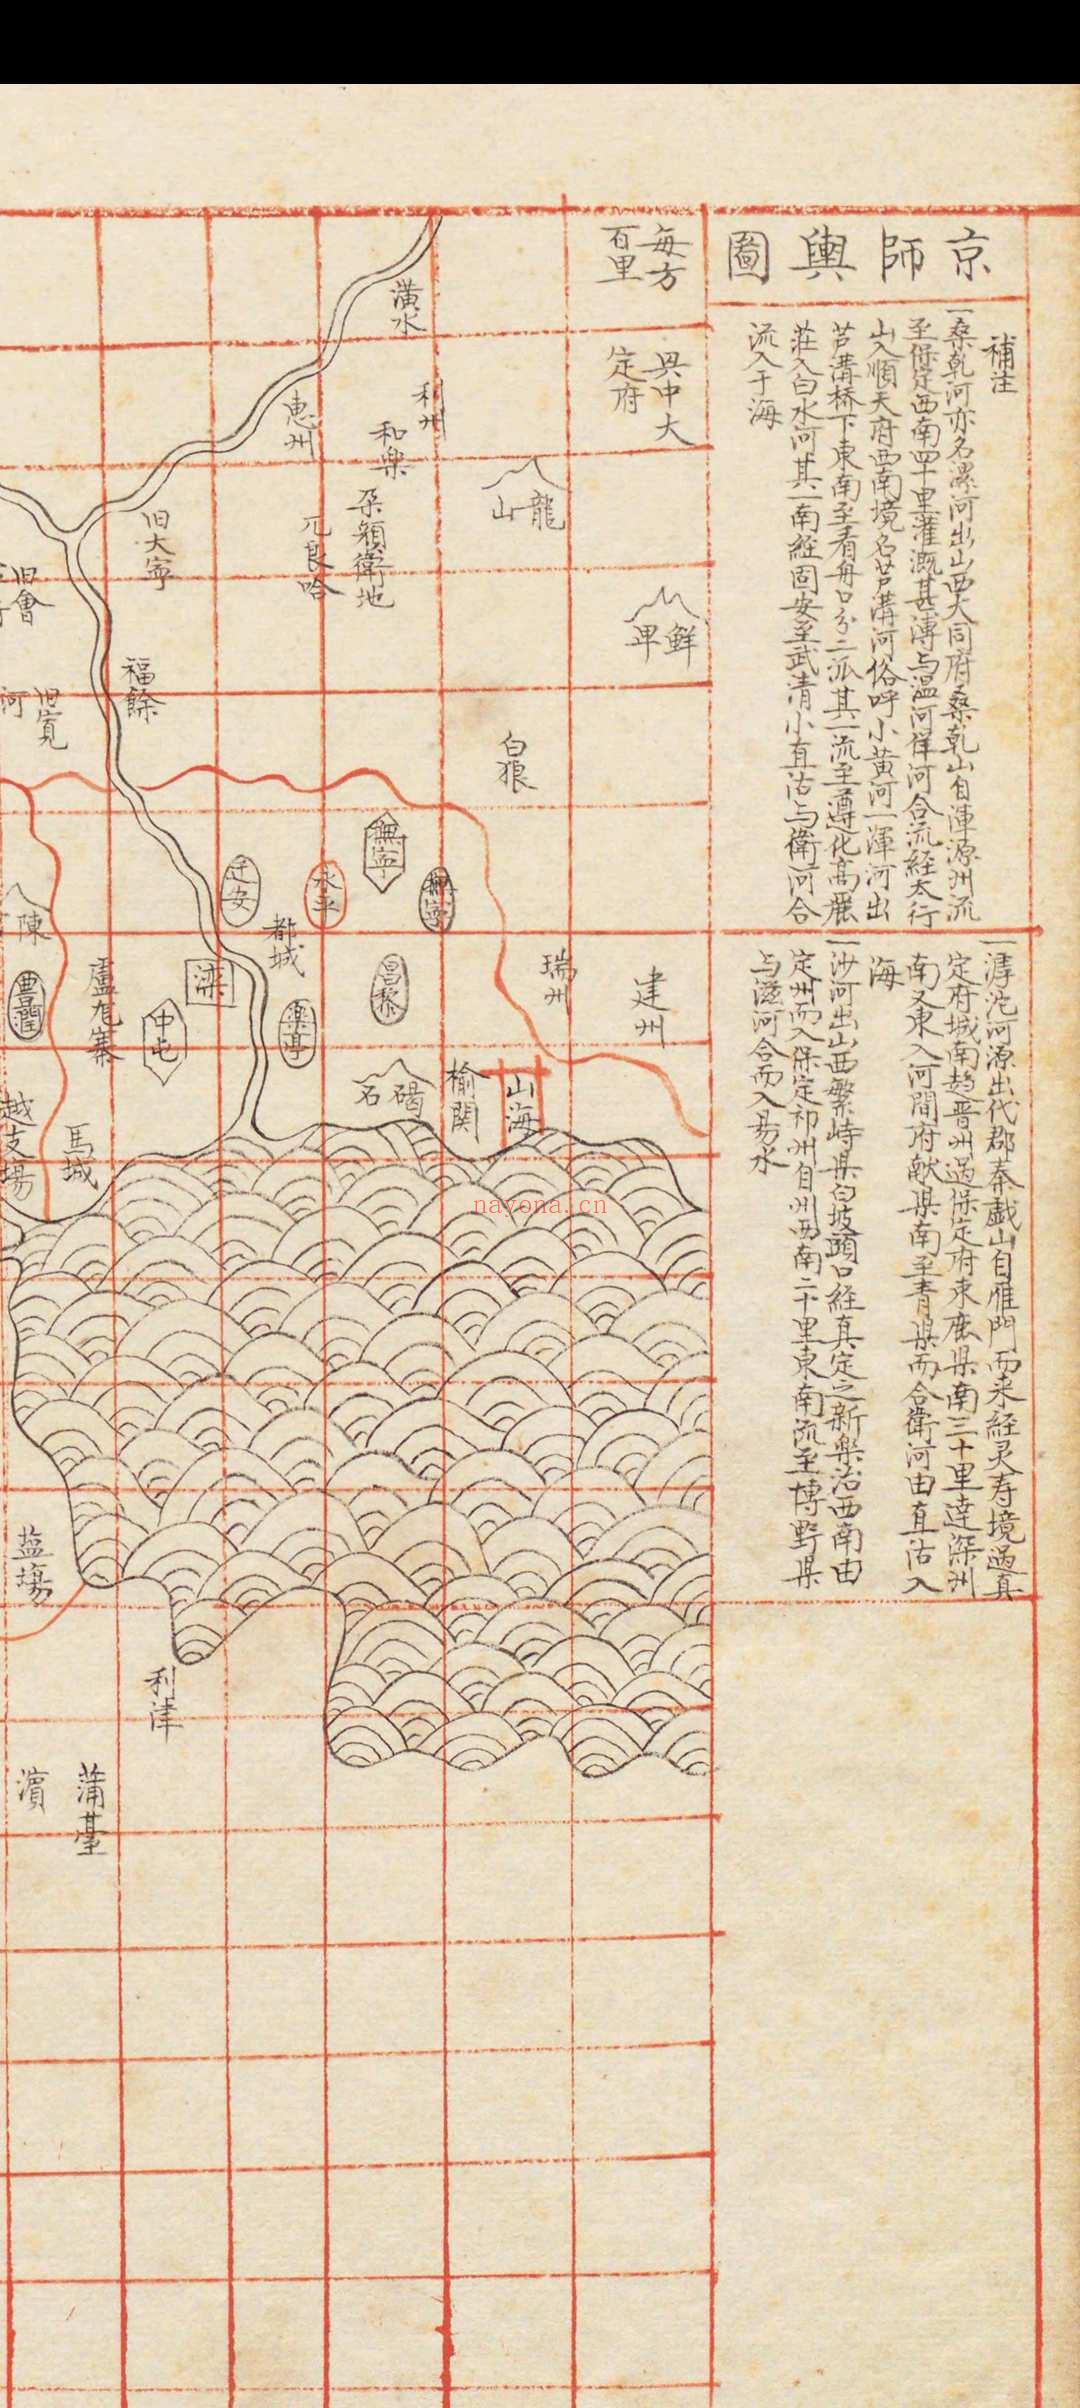 京師輿圖
補注
一桑乾河亦名漯河出山西大同府桑乾山自渾源州流
至保定西南四十里灌溉甚溥与温河徉河合流経太行
山入順天府西南境名芦溝河俗呼小黄河一渾河出
芦溝桥下東南至看舟口分二派其一流至遵化高麗
莊入白水河其一南経固安至武清小直沽与衛河合
流入于海
一滹沱河源出代郡秦戯山自雁門而来経灵寿境過真
定府城南趋晋州過保定府束鹿県南三十里逹深州
南又東入河間府献県南至青県而合衛河由直沽入
海
一沙河出山西繁峙県白坡頭口経真定之新楽沽西南由
定州而入保定祁州自州西南二十里東南流至博野県
与滋河合而入易水
每方
百里
興中大
定府
潢水
利州
惠州
和楽
朶顔衛地
兀良哈
龍
山
旧大寧
旧會
鮮
卑
福餘
旧寛
河
白狼
撫寧
迁安
永平
都城
陳
豊潤
盧龙寨
滦
中屯
昌黎
楽亭
瑞州
建州
碣
石
榆関
山海
越支塲
馬城
nayona.cn
盐塲
利津
蒲臺
濵